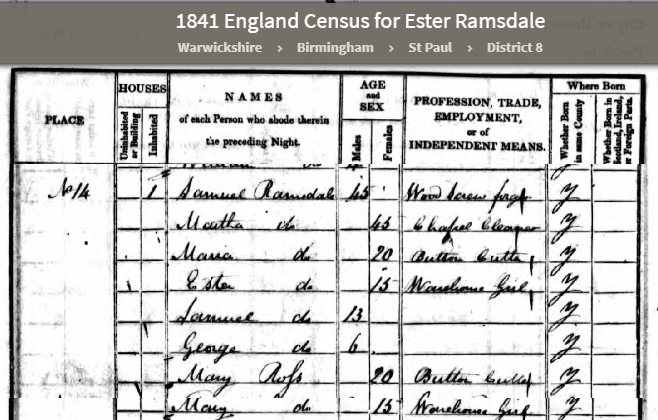 1841 England Census for Ester Ramsdale
Warwickshire › Birmingham › St Paul › District 8
PLACE
HOUSES
Uninhabited or Building
Inhabited
NAMES
of each Person who abode therein
the preceding Night.
AGE
and
SEX
Males
Females
PROFESSION, TRADE,
EMPLOYMENT,
or of
INDEPENDENT MEANS.
Where Born
Whether Born in same County
Whether Born in Scotland, Ireland, or Foreign Parts.
do
No 14 1 Samuel Ramsdale 45 Wood Screw forger y
Martha do 45 Chapel Cleaner y
Maria do 20 Button Cutter y
Ester do 15 Warehouse Girl y
Samuel do 13 y
George do 6 y
Mary Rofs 20 Button Cutter y
Mary do 15 Warehouse Girl y